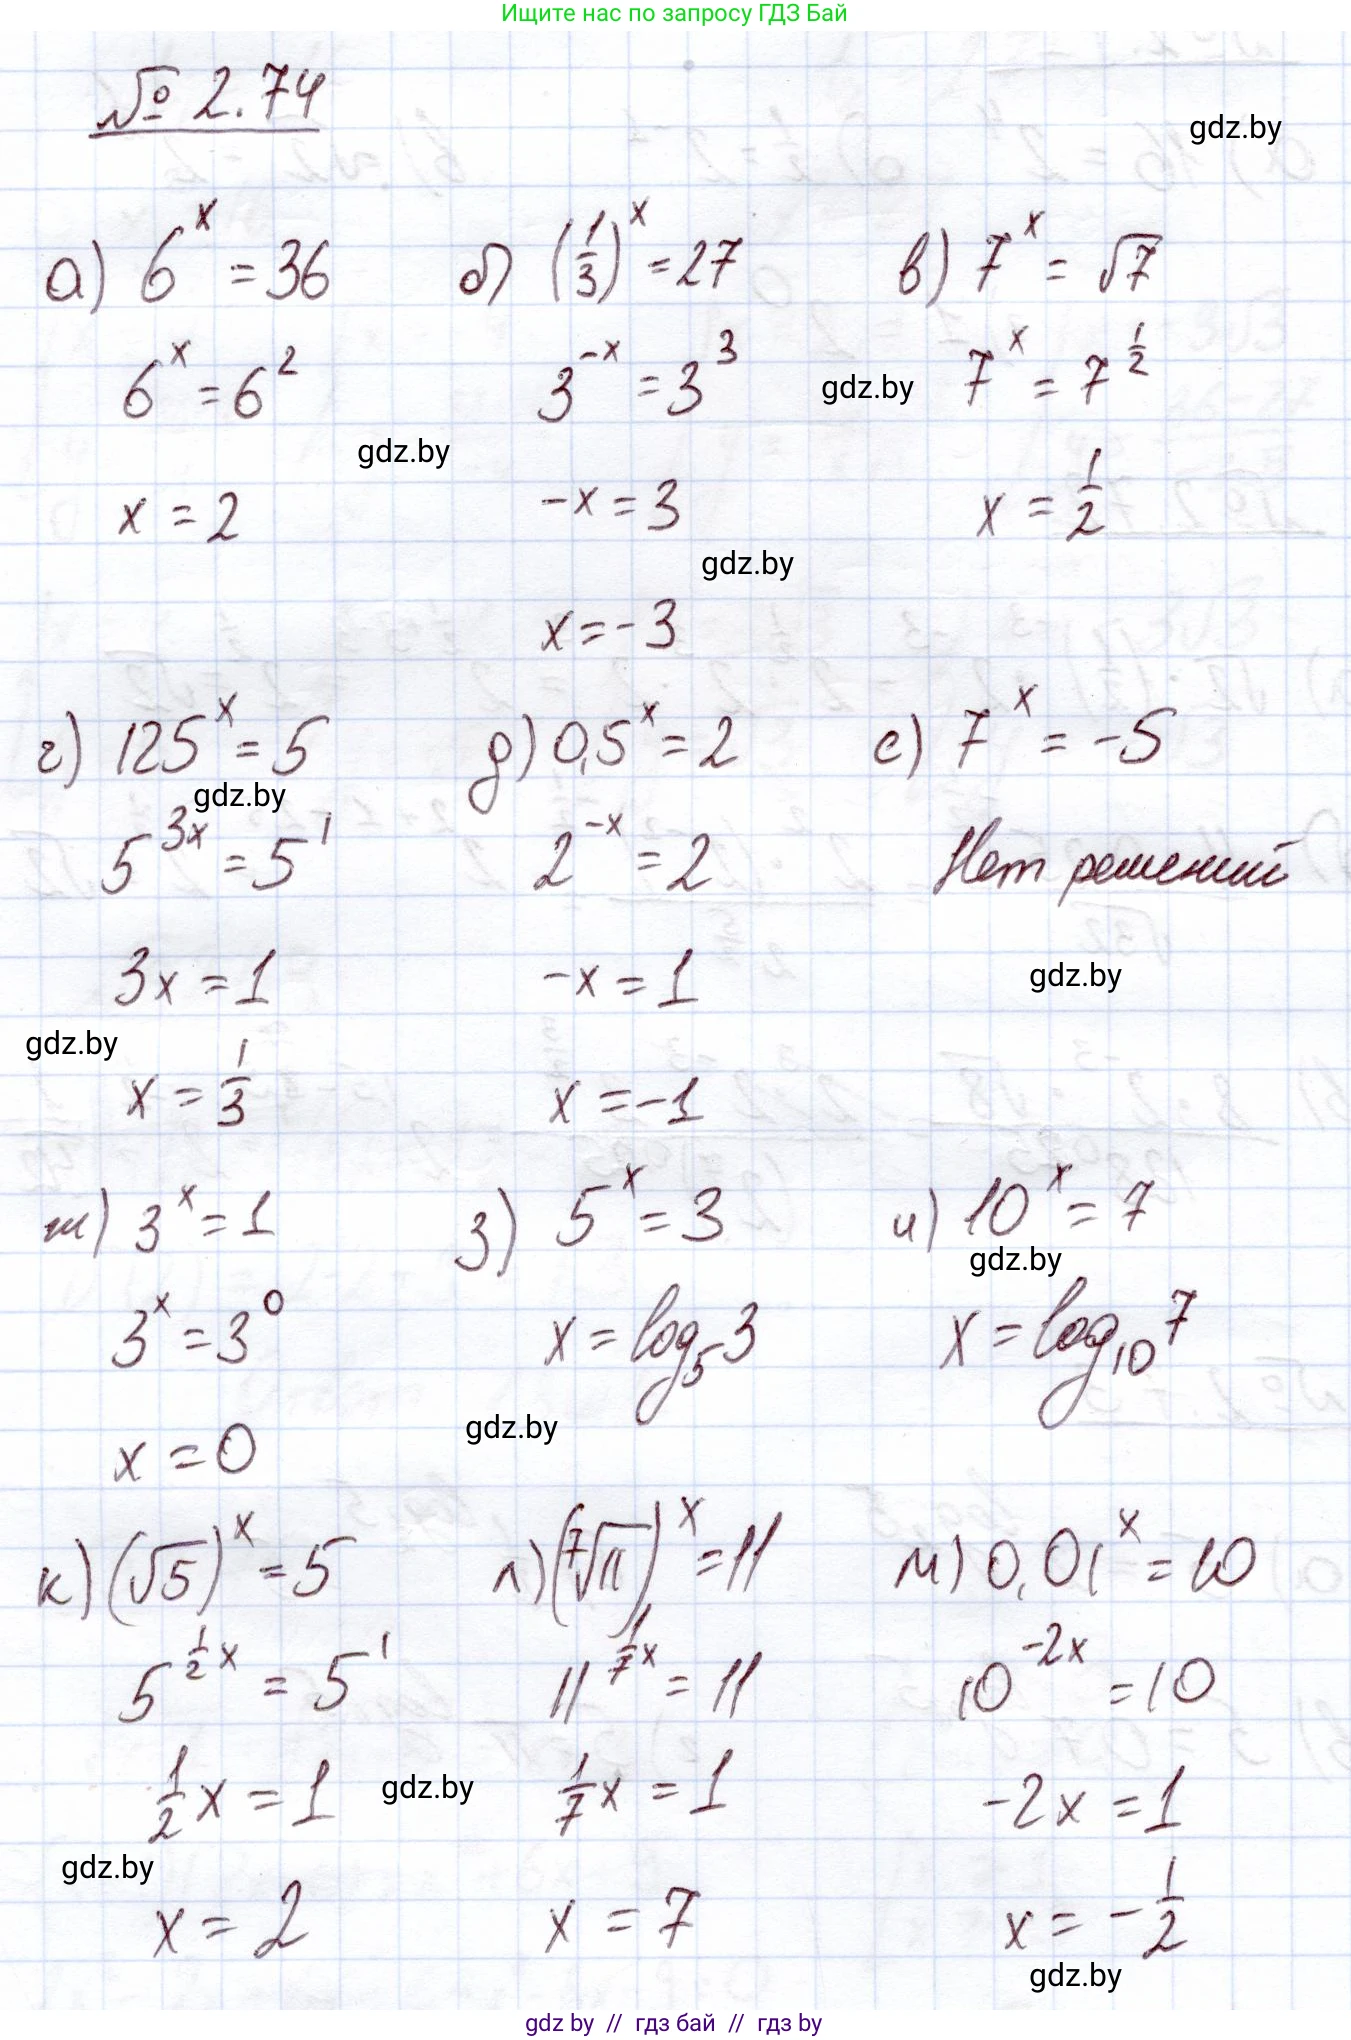 Ищите нас по запросу ГДЗ Бай
№ 2.74
gdz.by
а) 6^x = 36
б) (1/3)^x = 27
в) 7^x = √7
6^x = 6^2
3^{-x} = 3^3
gdz.by
7^x = 7^{1/2}
gdz.by
x = 2
-x = 3
x = 1/2
gdz.by
x = -3
г) 125^x = 5
д) 0,5^x = 2
е) 7^x = -5
gdz.by
5^{3x} = 5^1
2^{-x} = 2
Нет решений
3x = 1
-x = 1
gdz.by
gdz.by
x = 1/3
x = -1
ж) 3^x = 1
з) 5^x = 3
и) 10^x = 7
gdz.by
3^x = 3^0
x = log_5 3
x = log_{10} 7
gdz.by
x = 0
к) (√5)^x = 5
л) (⁷√11)^x = 11
м) 0,01^x = 10
5^{1/2 x} = 5^1
11^{1/7 x} = 11
10^{-2x} = 10
1/2 x = 1
gdz.by
1/7 x = 1
-2x = 1
gdz.by
x = 2
x = 7
x = -1/2
gdz.by
gdz by // гдз бай // гдз by